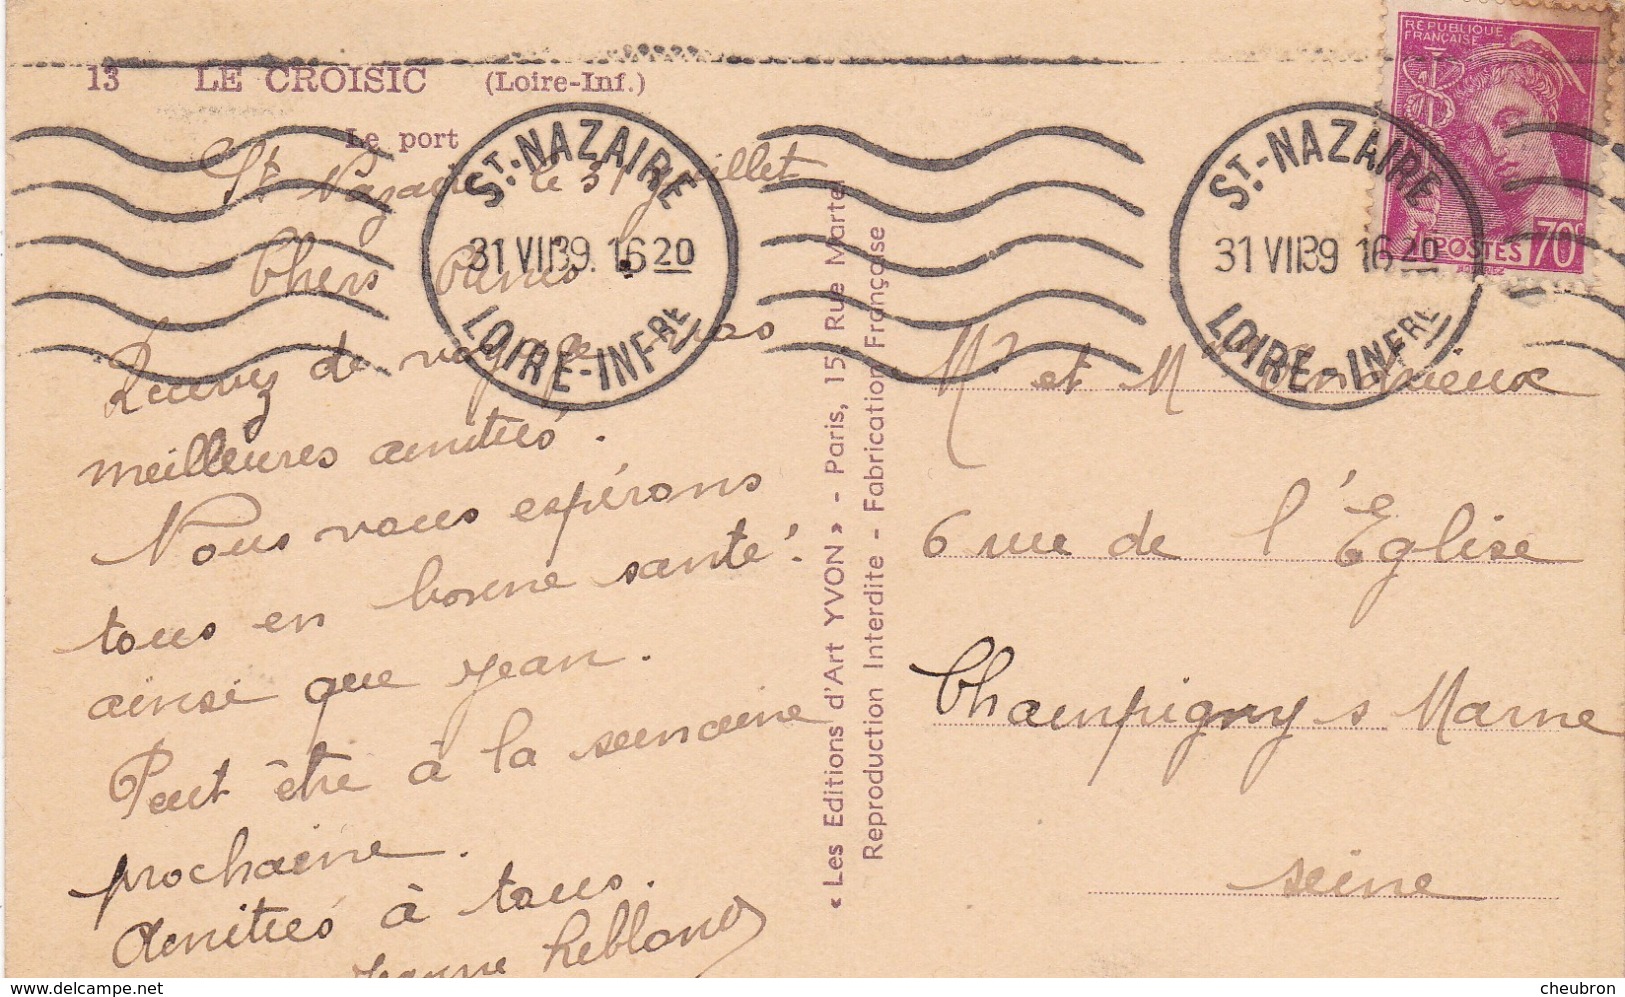 13 LE CROISIC (Loire-Inf.)
Le port
St Nazaire le 31 Juillet
Chers
Recevez de nos
meilleures amitiés.
Nous vous espérons
tous en bonne santé.
ainsi que Jean.
Peut être à la semaine
prochaine.
Amitiés à tous.
Jeanne Leblond
ST.-NAZAIRE
31 VII39. 1620
LOIRE-INFRE
ST.-NAZAIRE
31 VII39 1620
LOIRE-INFRE
« Les Editions d'Art YVON » - Paris, 15, Rue Martel
Reproduction Interdite - Fabrication Française
REPUBLIQUE
FRANÇAISE
POSTES 70c
Mr et Mme
6 rue de l'Eglise
Champigny s Marne
Seine
www.delcampe.net
cheubron